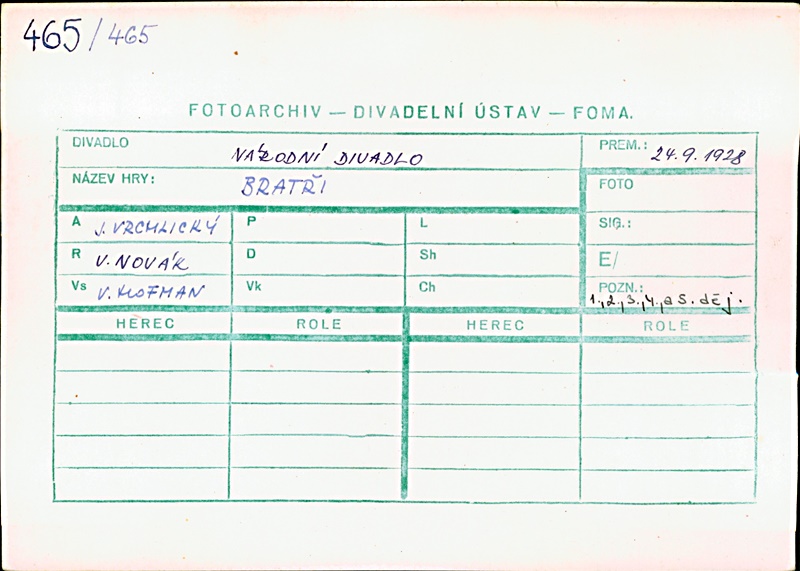 465/465
FOTOARCHIV — DIVADELNÍ ÚSTAV — FOMA.
DIVADLO NÁRODNÍ DIVADLO PREM.: 24.9.1928
NÁZEV HRY: BRATŘI FOTO
A J. VRCHLICKÝ P L SIG.:
R V. NOVÁK D Sh E/
Vs V. HOFMAN Vk Ch POZN.: 1., 2., 3., 4., a 5. děj.
HEREC ROLE HEREC ROLE